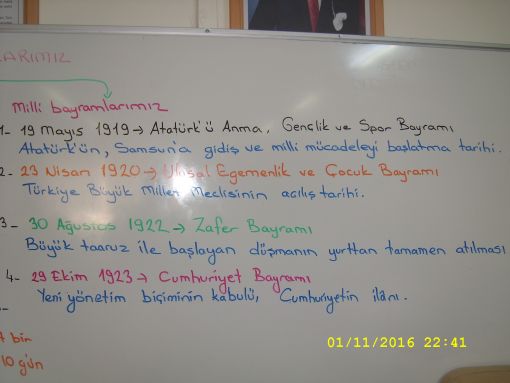 ARIMIZ
Milli bayramlarımız
1- 19 Mayıs 1919 → Atatürk'ü Anma, Gençlik ve Spor Bayramı
Atatürk'ün, Samsun'a gidiş ve milli mücadeleyi başlatma tarihi.
2- 23 Nisan 1920 → Ulusal Egemenlik ve Çocuk Bayramı
Türkiye Büyük Millet Meclisinin açılış tarihi.
3- 30 Ağustos 1922 → Zafer Bayramı
Büyük taaruz ile başlayan düşmanın yurttan tamamen atılması
4- 29 Ekim 1923 → Cumhuriyet Bayramı
Yeni yönetim biçiminin kabulü, Cumhuriyetin ilânı.
bir
10 gün
01/11/2016 22:41